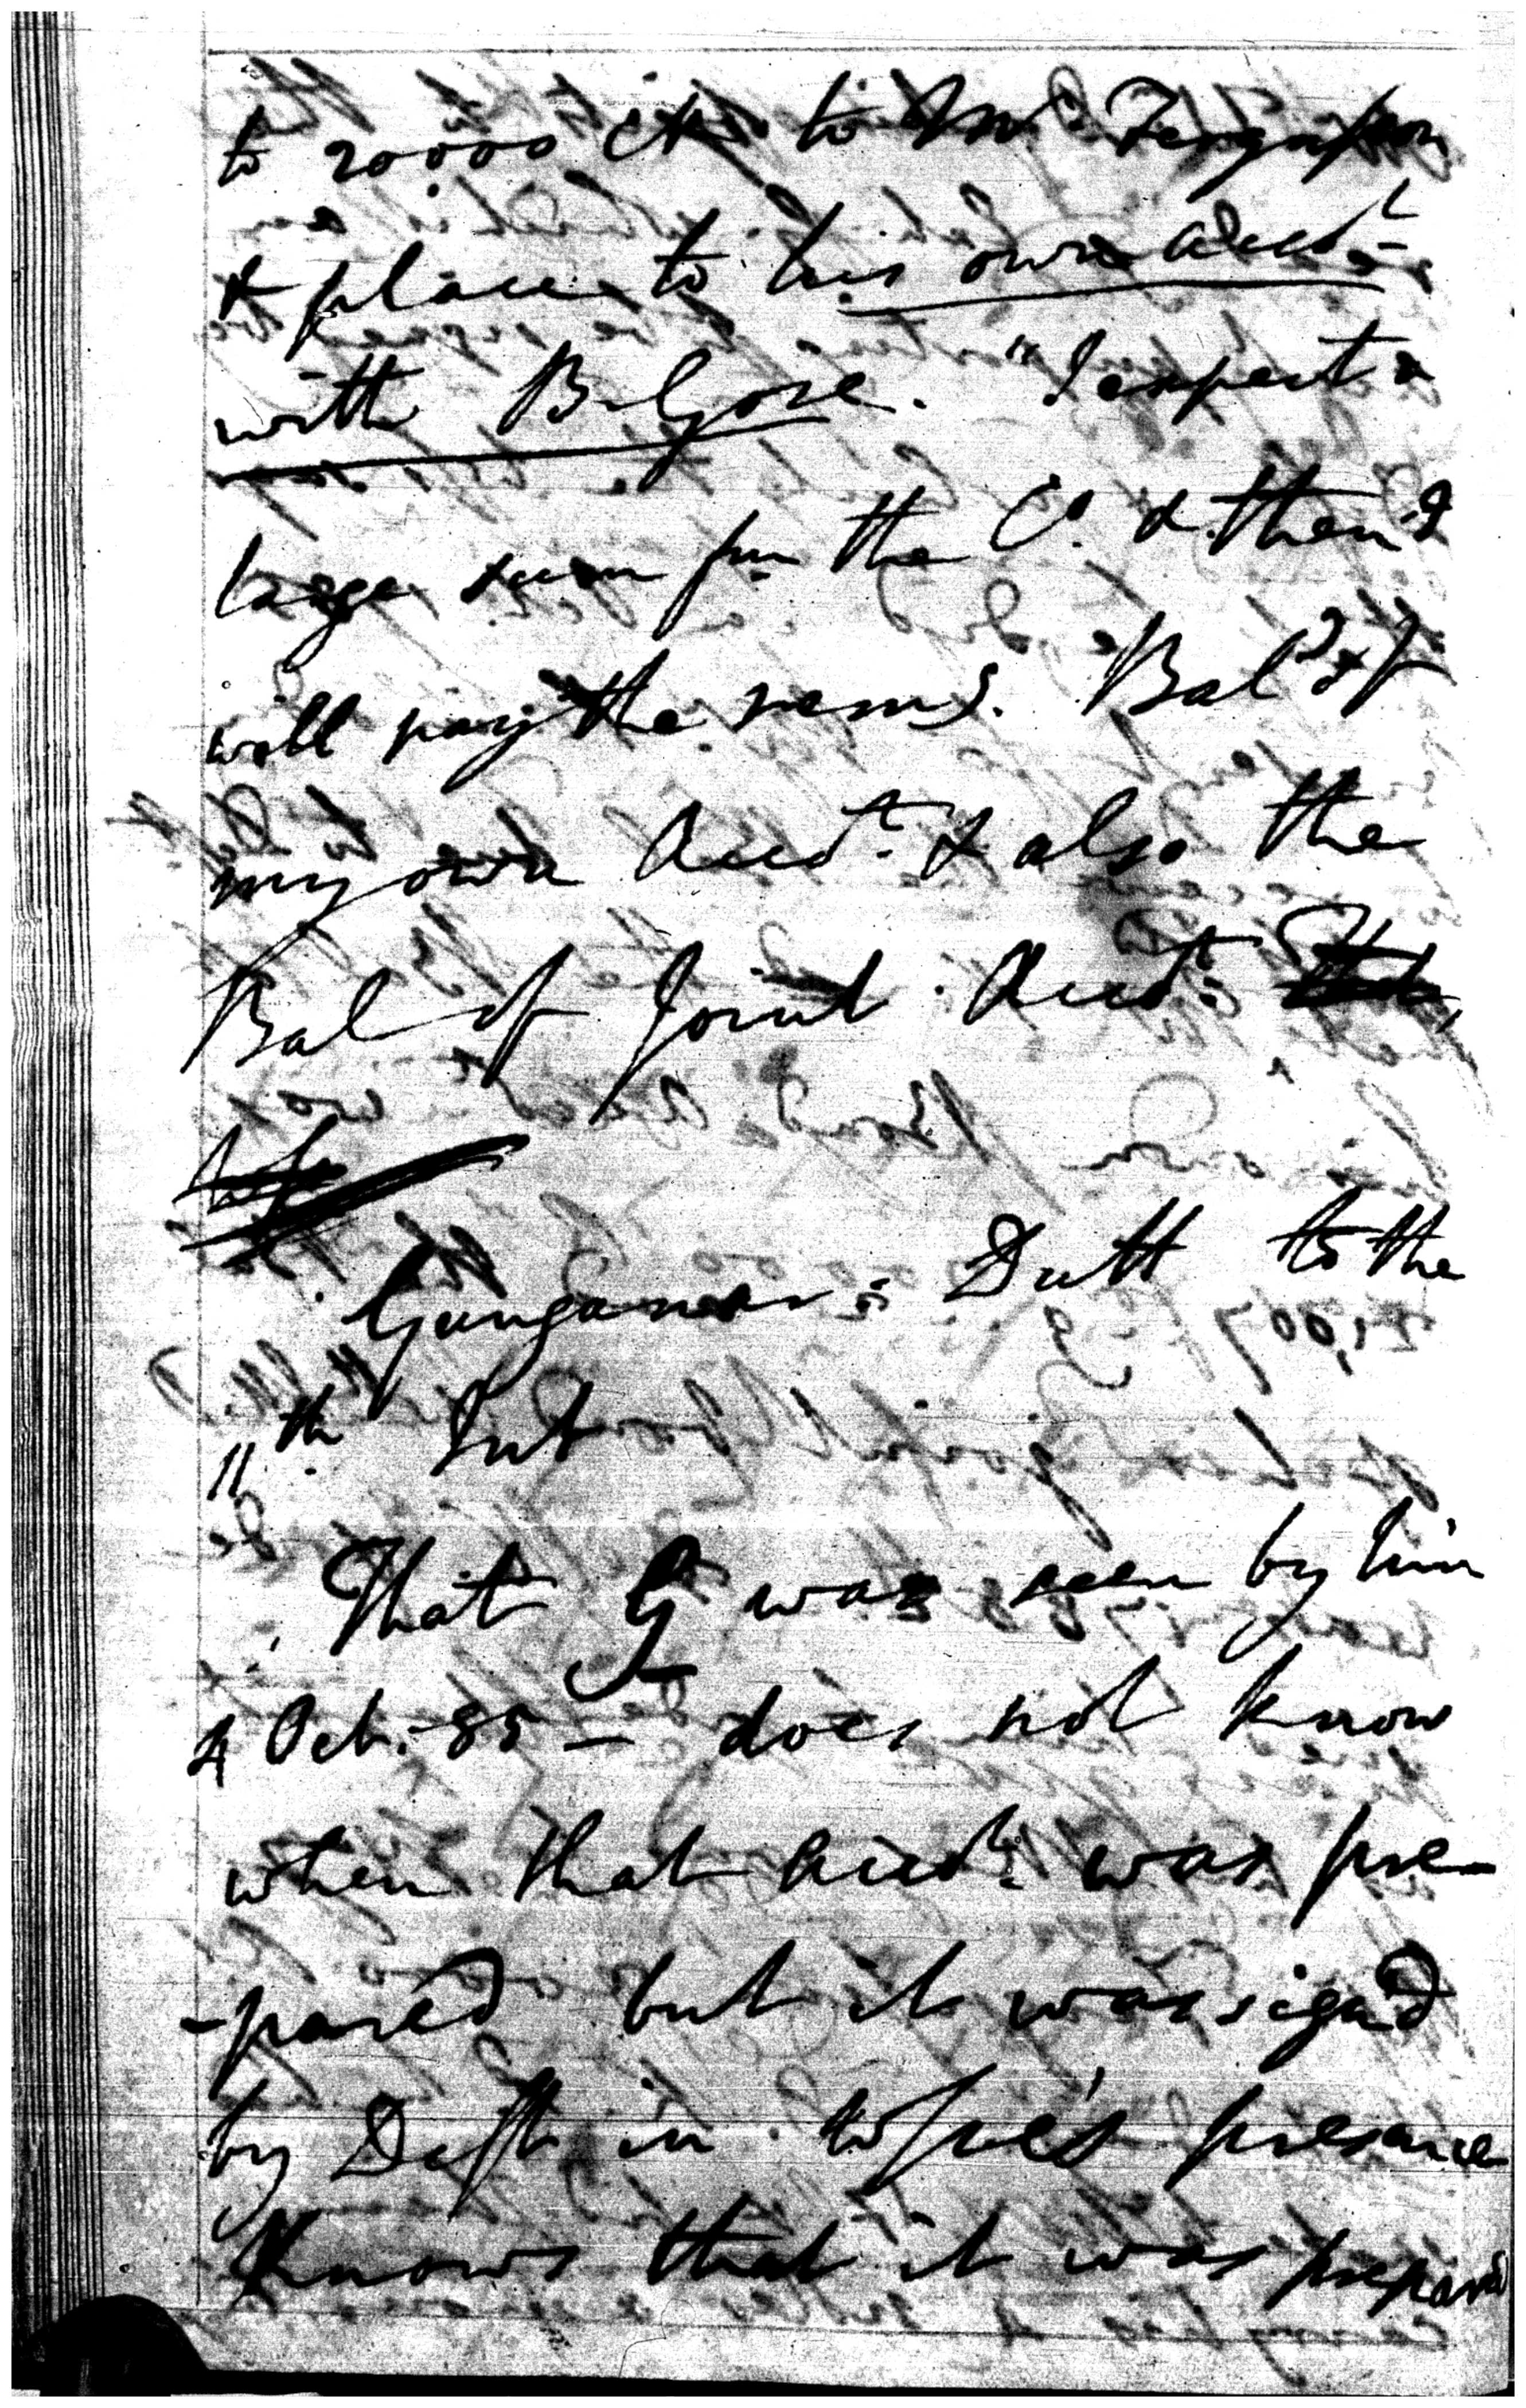 to 20000 to Mr Fergusson
& place to his own Acct
with B Gose. "I expect a
large sum fm the Co. & then I
will pay the remg. Bal of
my own Acct. & also the
Bal of Joint Acct.
Gunganarn: Dutt to the
11th Int
That G was seen by him
4 Oct. 85 - does not know
when that Acct. was pre-
-pared but it was sign'd
by Deft in Wfse's presence
Knows that it was prepard